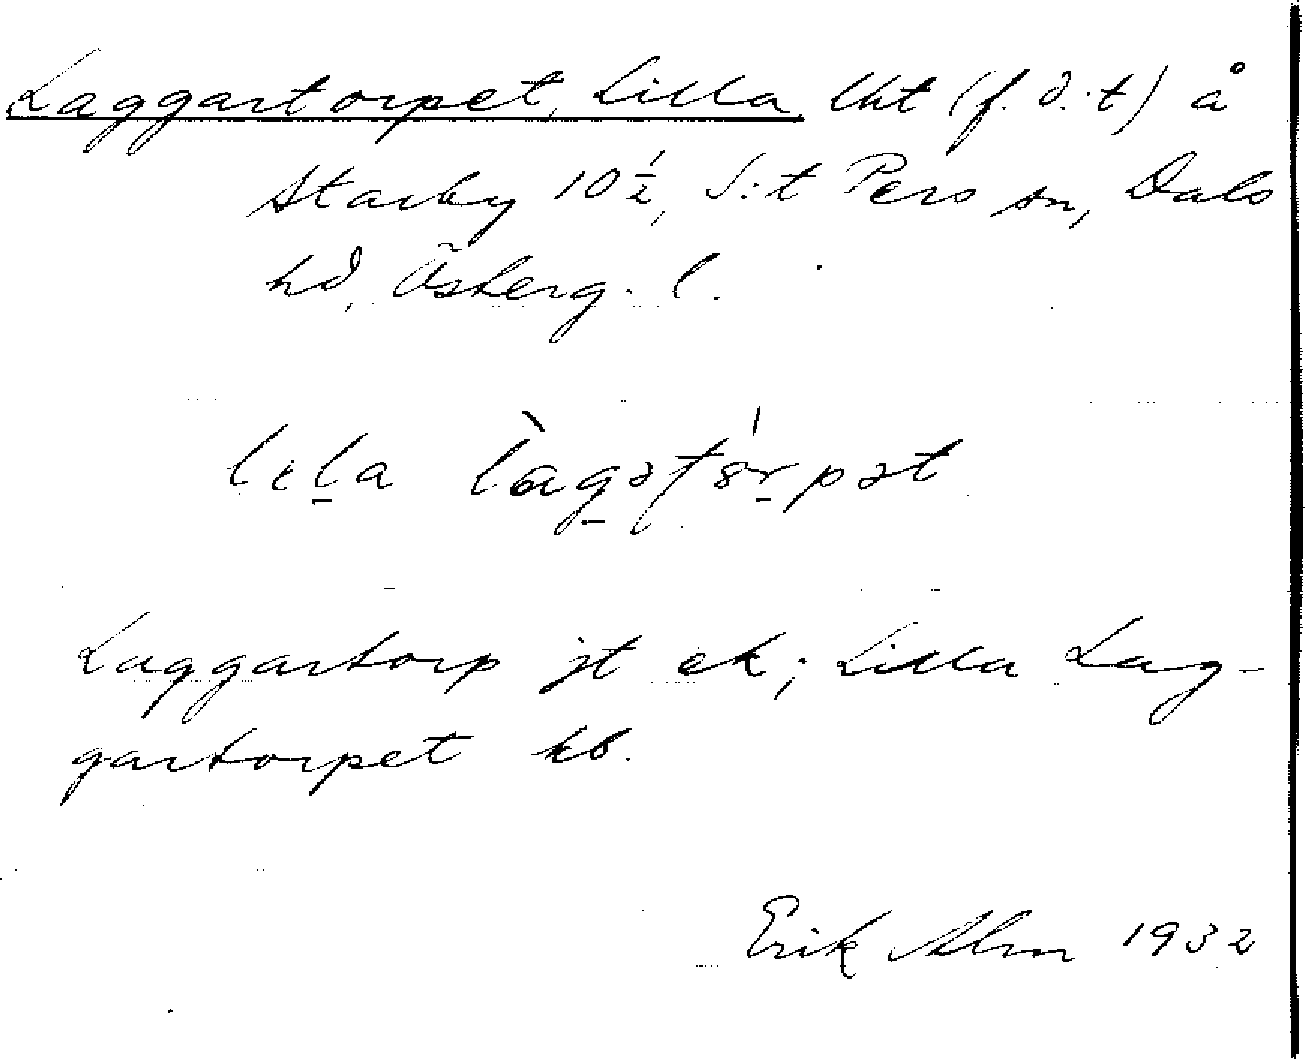 Laggartorpet, Lilla, lht (f. d. t) å
Starby 10 1/2, S:t Pers sn, Dals
hd, Österg. l.
lɩla làgətŏ́rpət
Laggartorp jt ek; Lilla Lag-
gartorpet kb.
Erik Alm 1932